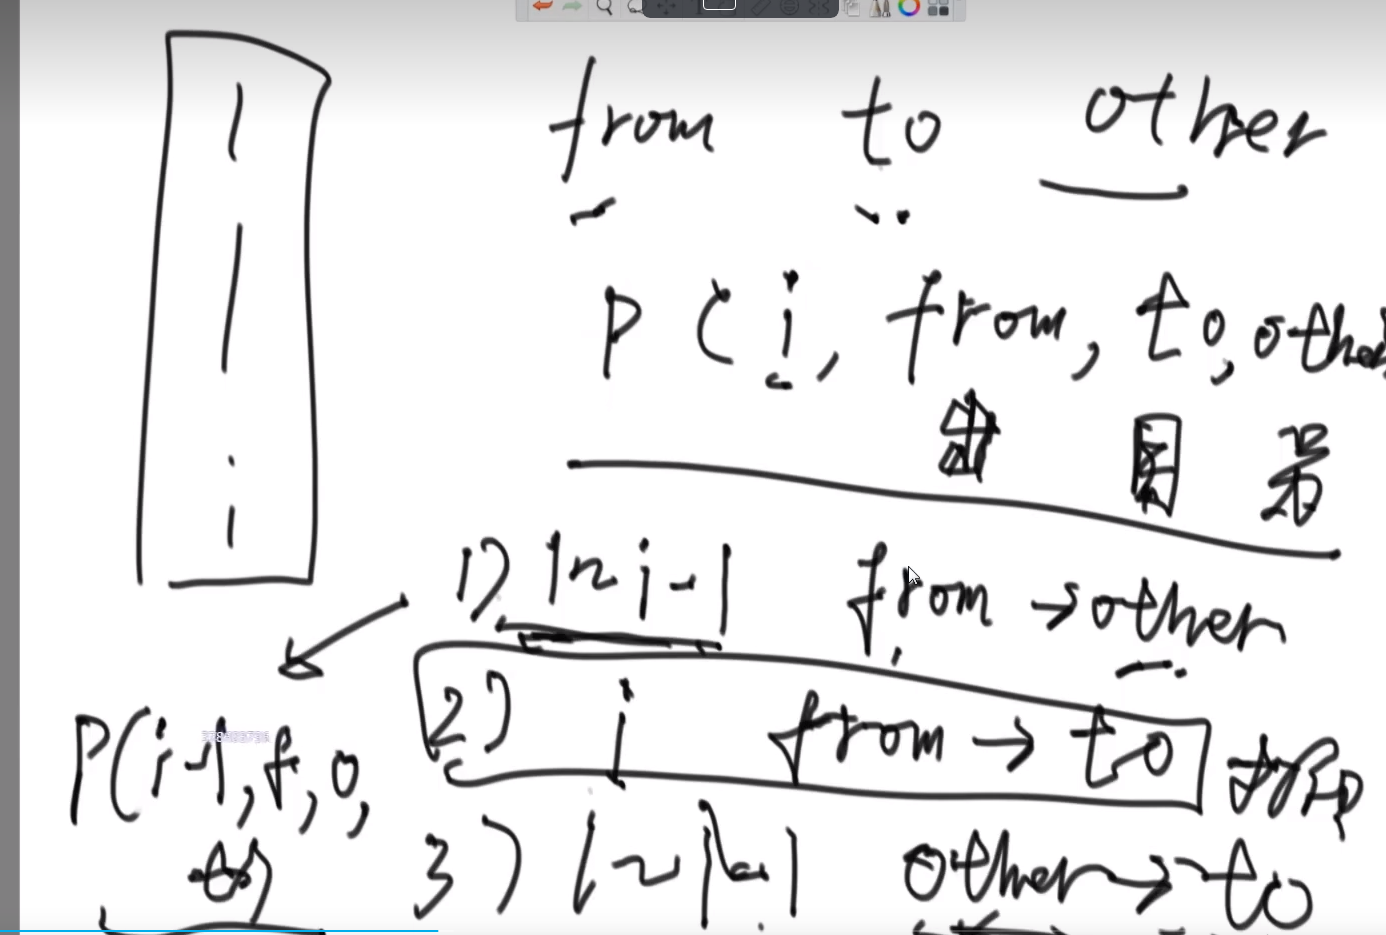 from to other
P(i, from, to, other
1) 1~i-1 from→other
2) i from→to 打印
P(i-1, f, o,
t)
3) 1~i-1 other→to